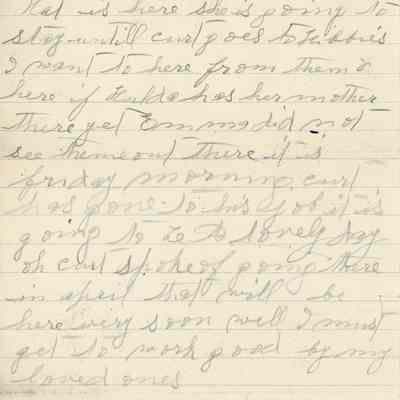 Kat is here she is going to
stay untill curt goes to Libbies
I want to here from them &
here if Hulda has her mother
there yet Emma did not
see them out there it is
friday morning curt
has gone to his job it is
going to be a lovely day
oh curt spoke of going there
in april that will be
here very soon well I must
get to work good by my
loved ones